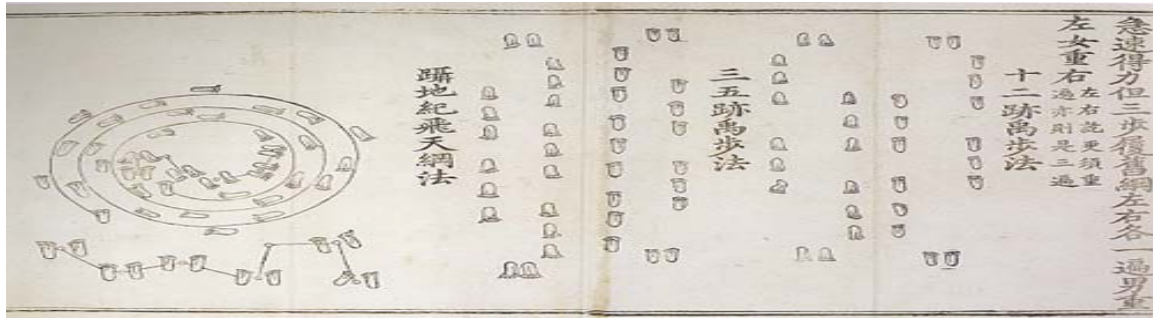 急速得力但三步履舊綱左右各一遍男重
左女重右
左右訖更須重
遶亦則是三遍
十二跡禹步法
三五跡禹步法
躡地紀飛天綱法